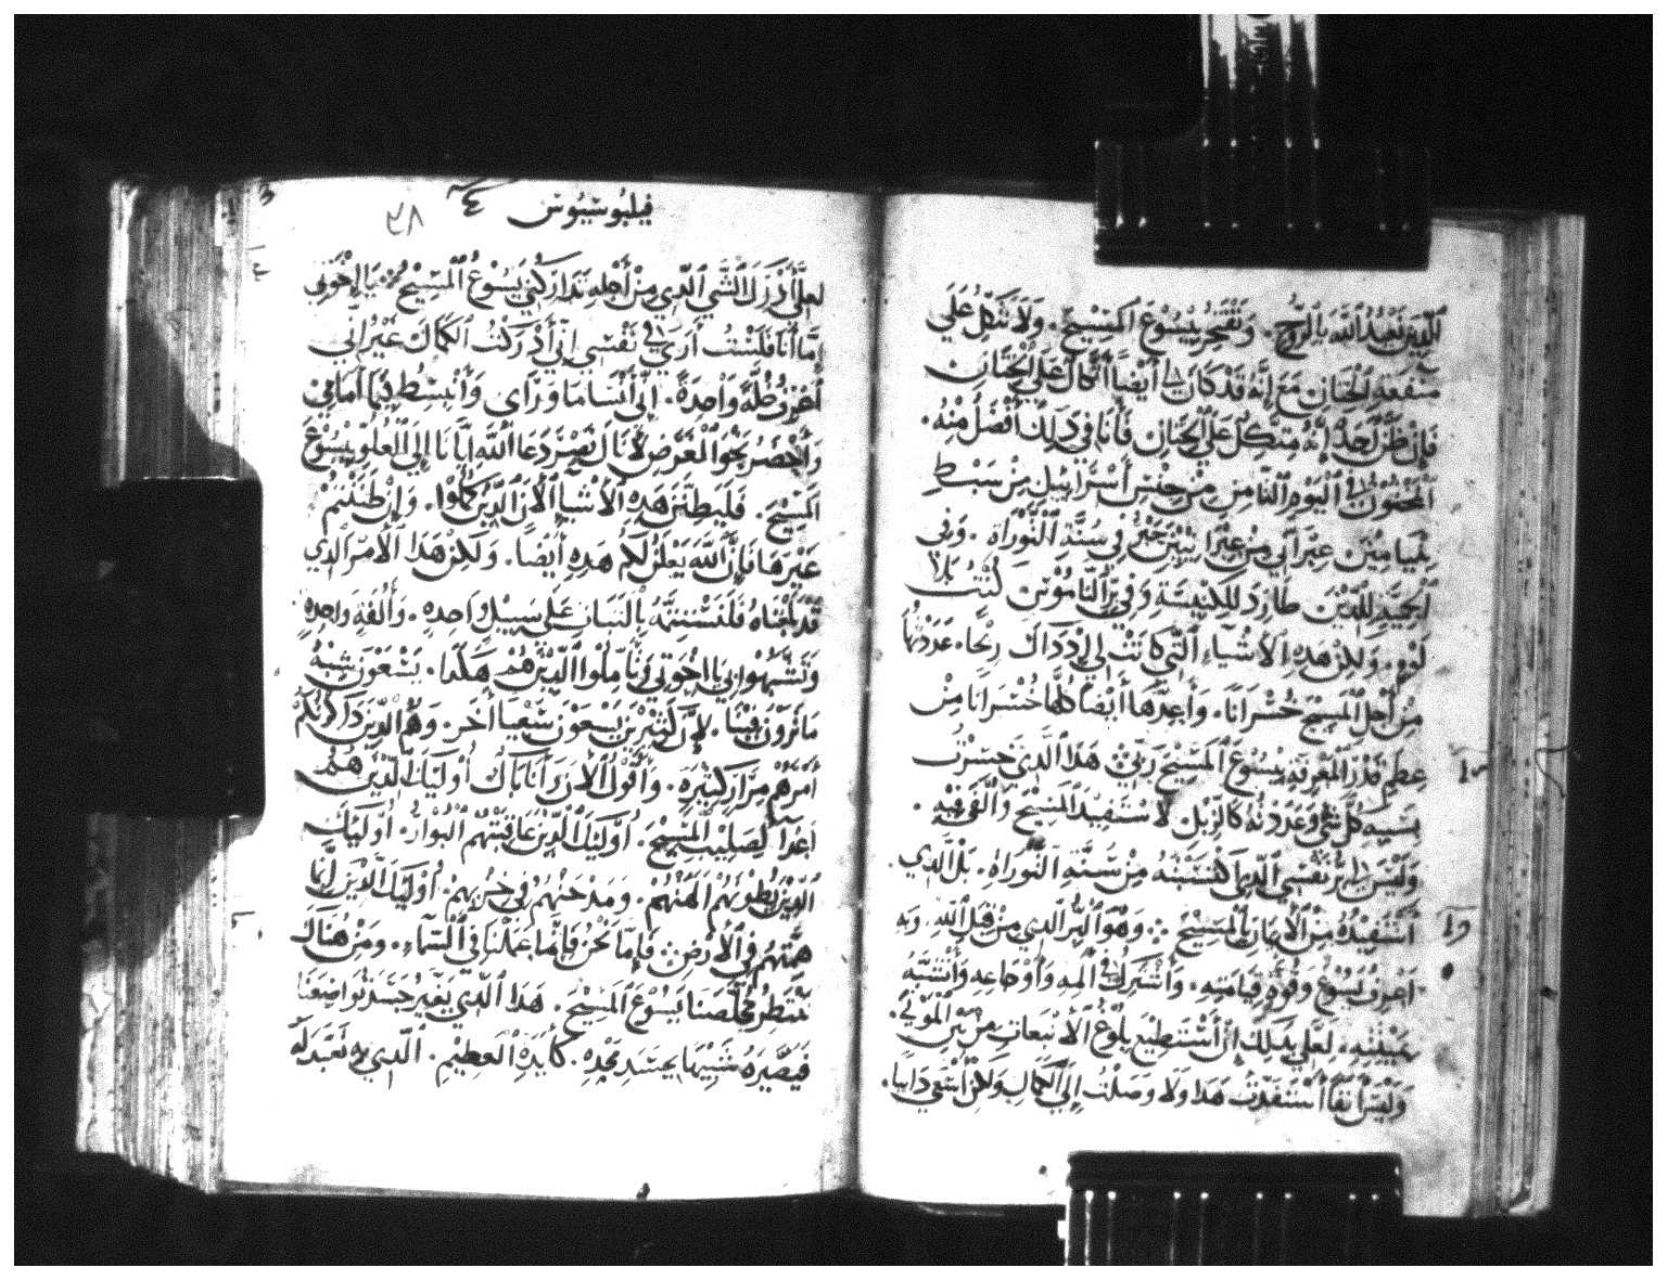 الذين نعبد الله بالروح. ونفتخر بيسوع المسيح. ولا نتكل علي
منفعة الختان مع إنه قد كان لي أيضاً اتكال علي الختان
فإن ظن احد إنه متكل علي الختان فأنا في ذلك أفضل منه.
المختون في اليوم الثامن من جنس أسرائيل من سبط
بنيامين عبراني من عبرانيين حبر في سنة التوراه. وفي
الحمية للدين طارد للكنيسة وفي بر الناموس كنت بلا
لوم. ولكن هذه الاشياء التي كانت لي إذ ذاك ربحا. عددتها
من أجل المسيح خسرانا. وأعدها أيضاً كلها خسرانا من
عظم قدر المعرفة بيسوع المسيح ربي هذا الذي خسرت
بسببه كل شي وعددته كالزبل لاستفيد المسيح والقي فيه.
وليس لي بر نفسي الذي اكتسبته من سنة التوراه. بل الذي
أستفيده من الأيمان بالمسيح وهو البر الذي من قبل الله. وبه
اعرف يسوع وقوة قيامته. وأشترك في ألمه وأوجاعه وأتشبه
بميتته. لعلي بذلك إن أستطيع بلوغ الأنبعات من بين الموتي.
وليس أنفاً أستفدت هذا ولا وصلت إلي الكمال ولكن أسعي دايبا.
فيلبوسيوس ٢٨
لعلي أدرك الشي الذي من أجله تداركني يسوع المسيح يا إخوتي
إما أنا فلست أري في نفسي إني أدركت الكمال غير إني
أعرف خلة واحدة. إني أنسا ما ورأى وأنبسط فيما أمامي
وأحضر نحو الغرض لأنال نصر دعا الله ايانا إلي العلو بيسوع
المسيح. فليظنن هذه الأشيا ألأن الذين كملوا. وإن ظننتم
غيرها فإن الله يعلن لكم هذه أيضاً. ولكن هذا الأمر الذي
قد بلغناه فلنستتمه بالثبات علي سبيل واحده. وألفة واحده
وتشبهوا بي يا اخوتي وتأملوا الذين هم هكذا. يسعون شبه
ما ترون فينا. لإن كثيرين يسعون سعيا أخر. وهم الذين ذاكرتكم
أمرهم مراركثيره. وأقول الان وأنا باك أوليك الذين هم
أعدآ لصليب المسيح. أوليك الذين عاقبتهم البوار. أوليك
الذين بطونهم الهتهم. ومدحتهم في خزيهم. أوليك الذين إنما
همتهم في الأرض فإما نحن فإنما عملنا في السماء. ومن هناك
ننتظر مخلصنا يسوع المسيح. هذا الذي يغير جسد تواضعنا
فيصيره شبيها بجسد مجده. كأيده العظيم. الذي به تعبد له